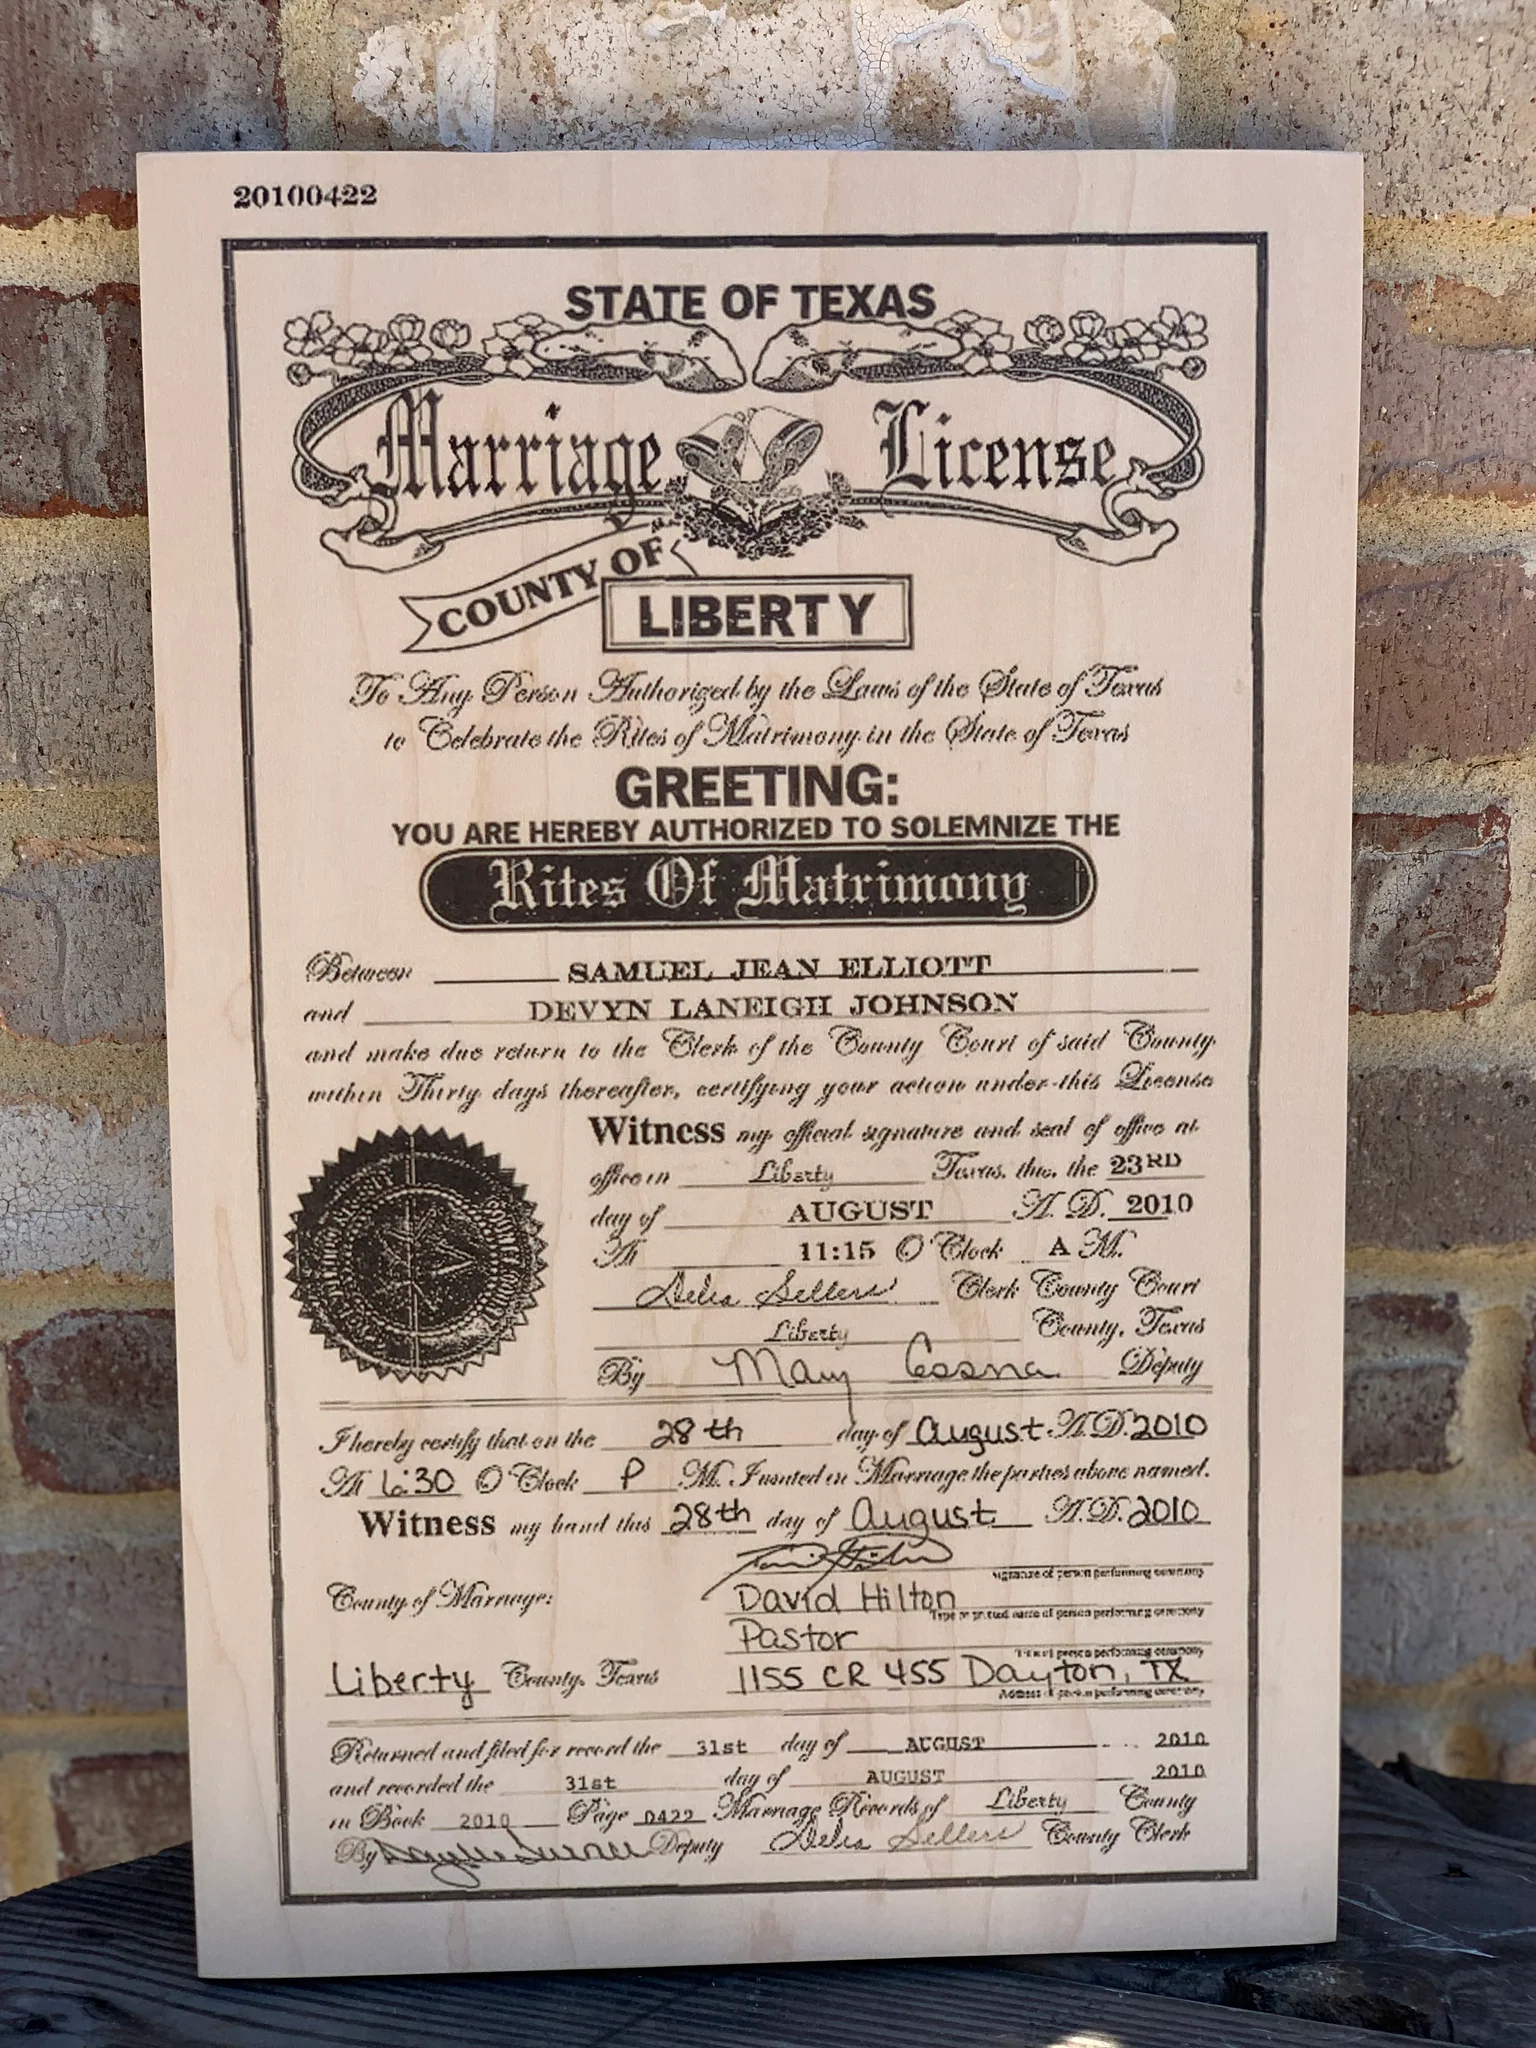 20100422
STATE OF TEXAS
Marriage License
COUNTY OF
LIBERTY
To Any Person Authorized by the Laws of the State of Texas
to Celebrate the Rites of Matrimony in the State of Texas
GREETING:
YOU ARE HEREBY AUTHORIZED TO SOLEMNIZE THE
Rites Of Matrimony
Between SAMUEL JEAN ELLIOTT
and DEVYN LANEIGH JOHNSON
and make due return to the Clerk of the County Court of said County
within Thirty days thereafter, certifying your action under this License
Witness my official signature and seal of office at
office in Liberty Texas, this, the 23RD
day of AUGUST A. D. 2010
At 11:15 O'Clock A M.
Delia Sellers Clerk County Court
Liberty County, Texas
By Mary Cosna Deputy
I hereby certify that on the 28th day of August A.D. 2010
At 6:30 O'Clock P M. I united in Marriage the parties above named.
Witness my hand this 28th day of August A.D. 2010
Signature of person performing ceremony
County of Marriage:
David Hilton
Type or printed name of person performing ceremony
Pastor
Title of person performing ceremony
Liberty County, Texas
1155 CR 455 Dayton, TX
Address of person performing ceremony
Returned and filed for record the 31st day of AUGUST 2010
and recorded the 31st day of AUGUST 2010
in Book 2010 Page 0422 Marriage Records of Liberty County
By Deputy Delia Sellers County Clerk